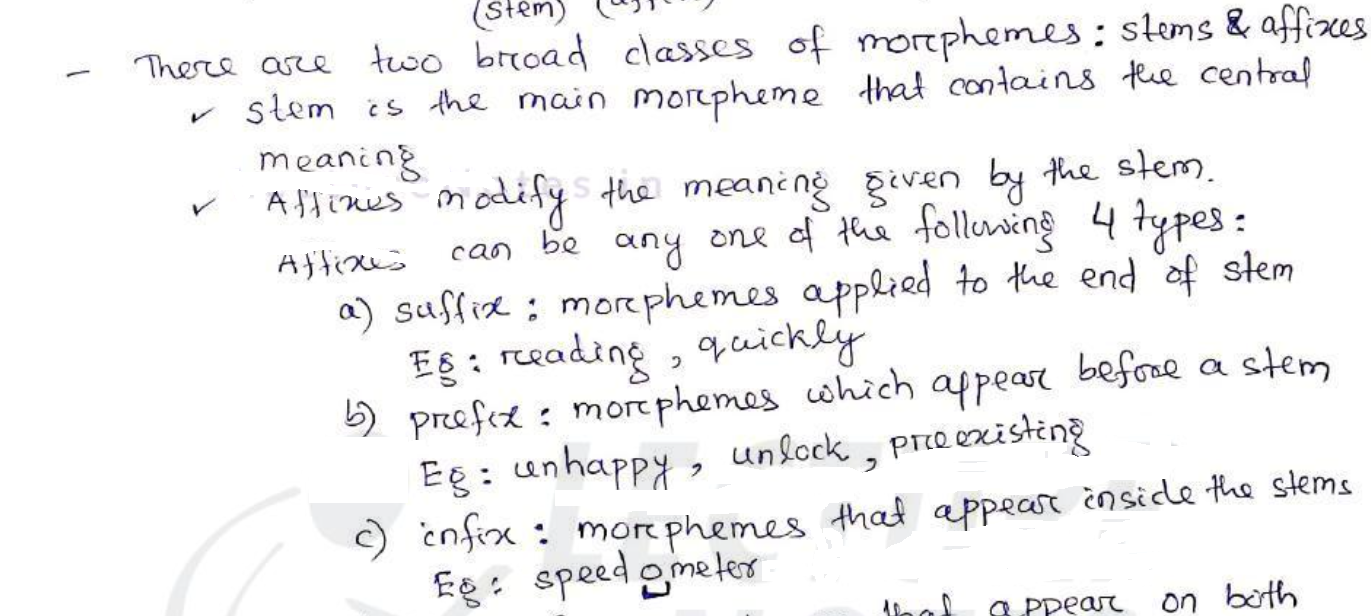 (stem)
- There are two broad classes of morphemes : stems & affixes
✓ stem is the main morpheme that contains the central
meaning
✓ Affixes modify the meaning given by the stem.
Affixes can be any one of the following 4 types :
a) suffix : morphemes applied to the end of stem
Eg : reading , quickly
b) prefix : morphemes which appear before a stem
Eg : unhappy , unlock , preexisting
c) infix : morphemes that appear inside the stems
Eg : speedometer
that appear on both